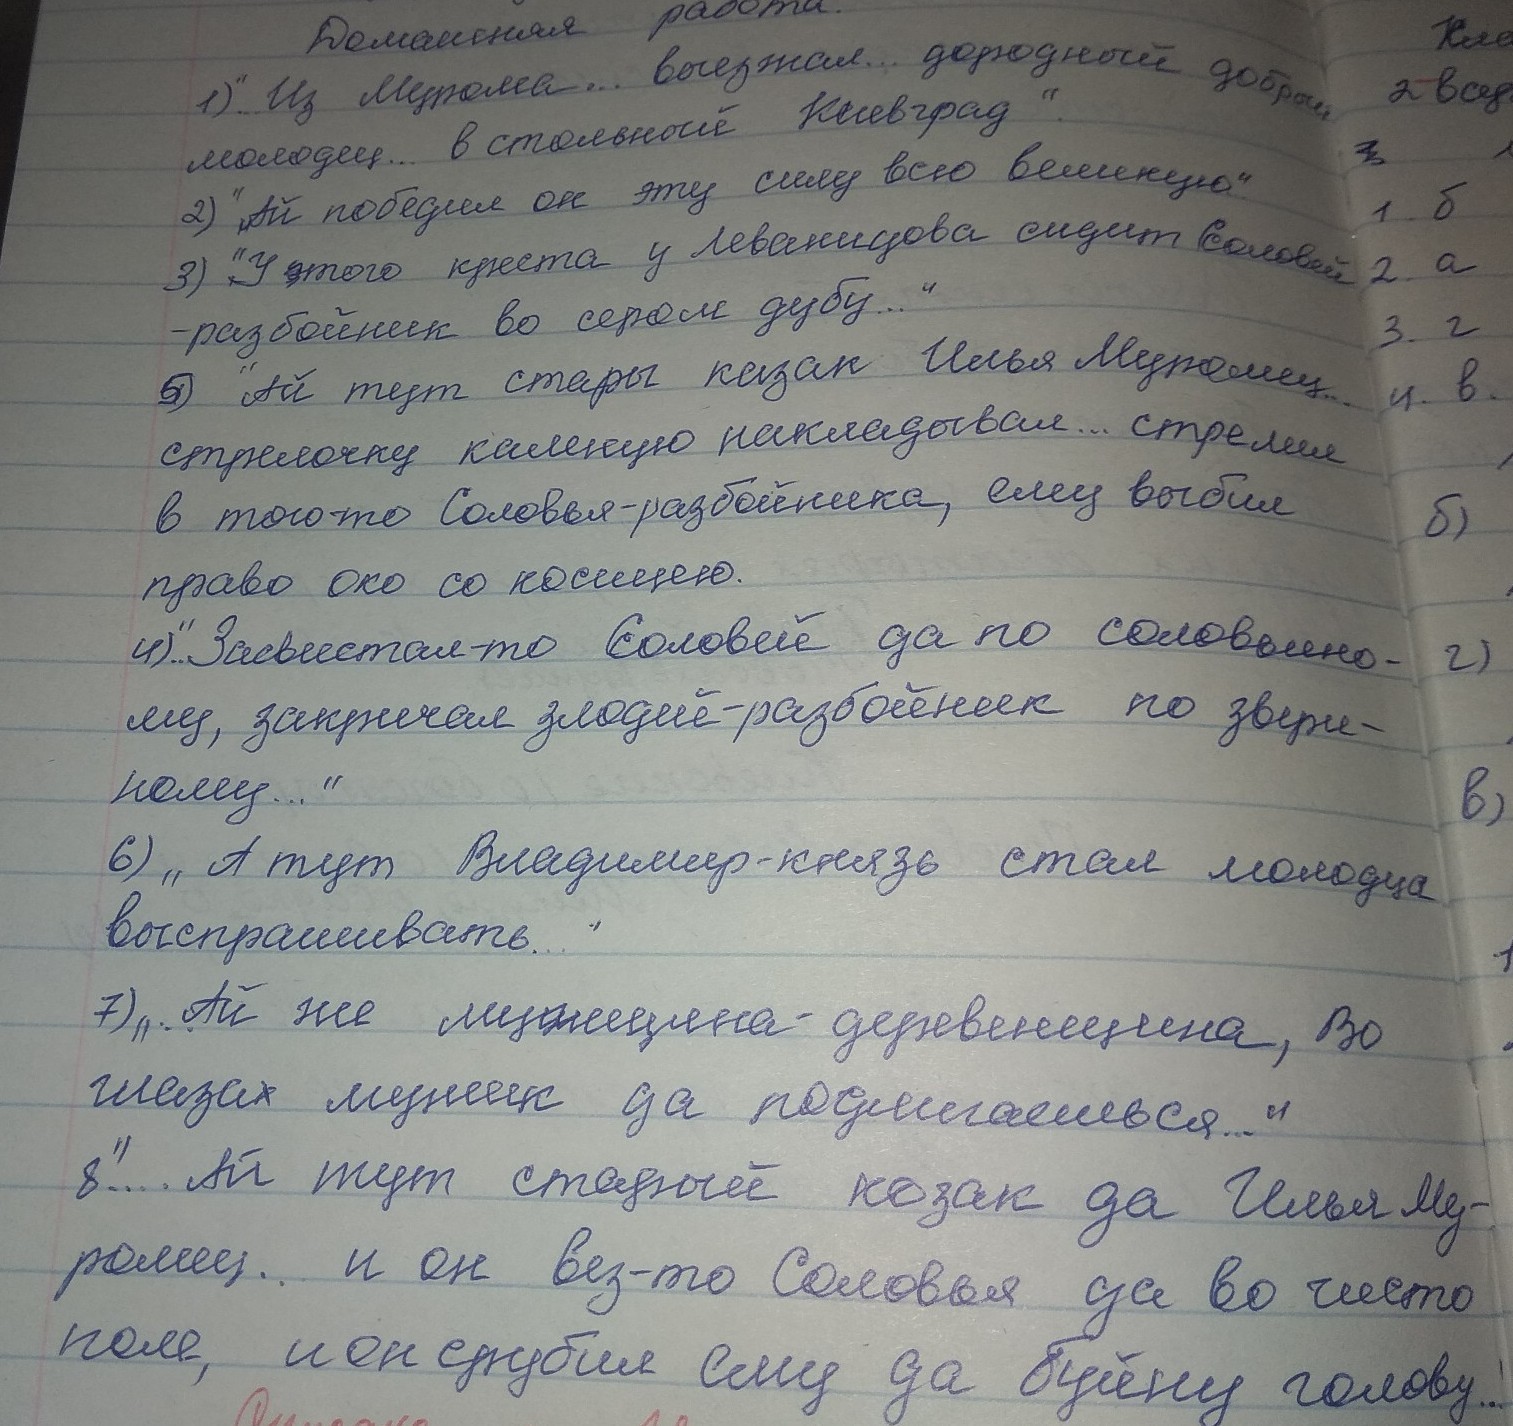 Домашняя работа.
1) "... Из Мурома... выезжал... дородный добрый
молодец... в стольный Киевград".
2) "Ай победил он эту силу всю великую"
3) "У этого креста у Леванидова сидит Соловей
-разбойник во сером дубу..."
5) "Ай тут стары казак Илья Муромец...
стрелочку каленую накладывал... стрелил
в того-то Соловья-разбойника, ему выбил
право око со косицею.
4) "...Засвистал-то Соловей да по соловьино-
му, закричал злодей-разбойник по звери-
ному..."
6) „А тут Владимир-князь стал молодца
выспрашивать..."
7) „...Ай же мужищина-деревенщина, Во
глазах мужик да подлигаешься..."
8".... Ай тут старый козак да Илья Му-
ромец... и он вез-то Соловья да во чисто
поле, и он срубил ему да буйну голову...
1. б
2. а
3. г
4. в.
б)
г)
в)